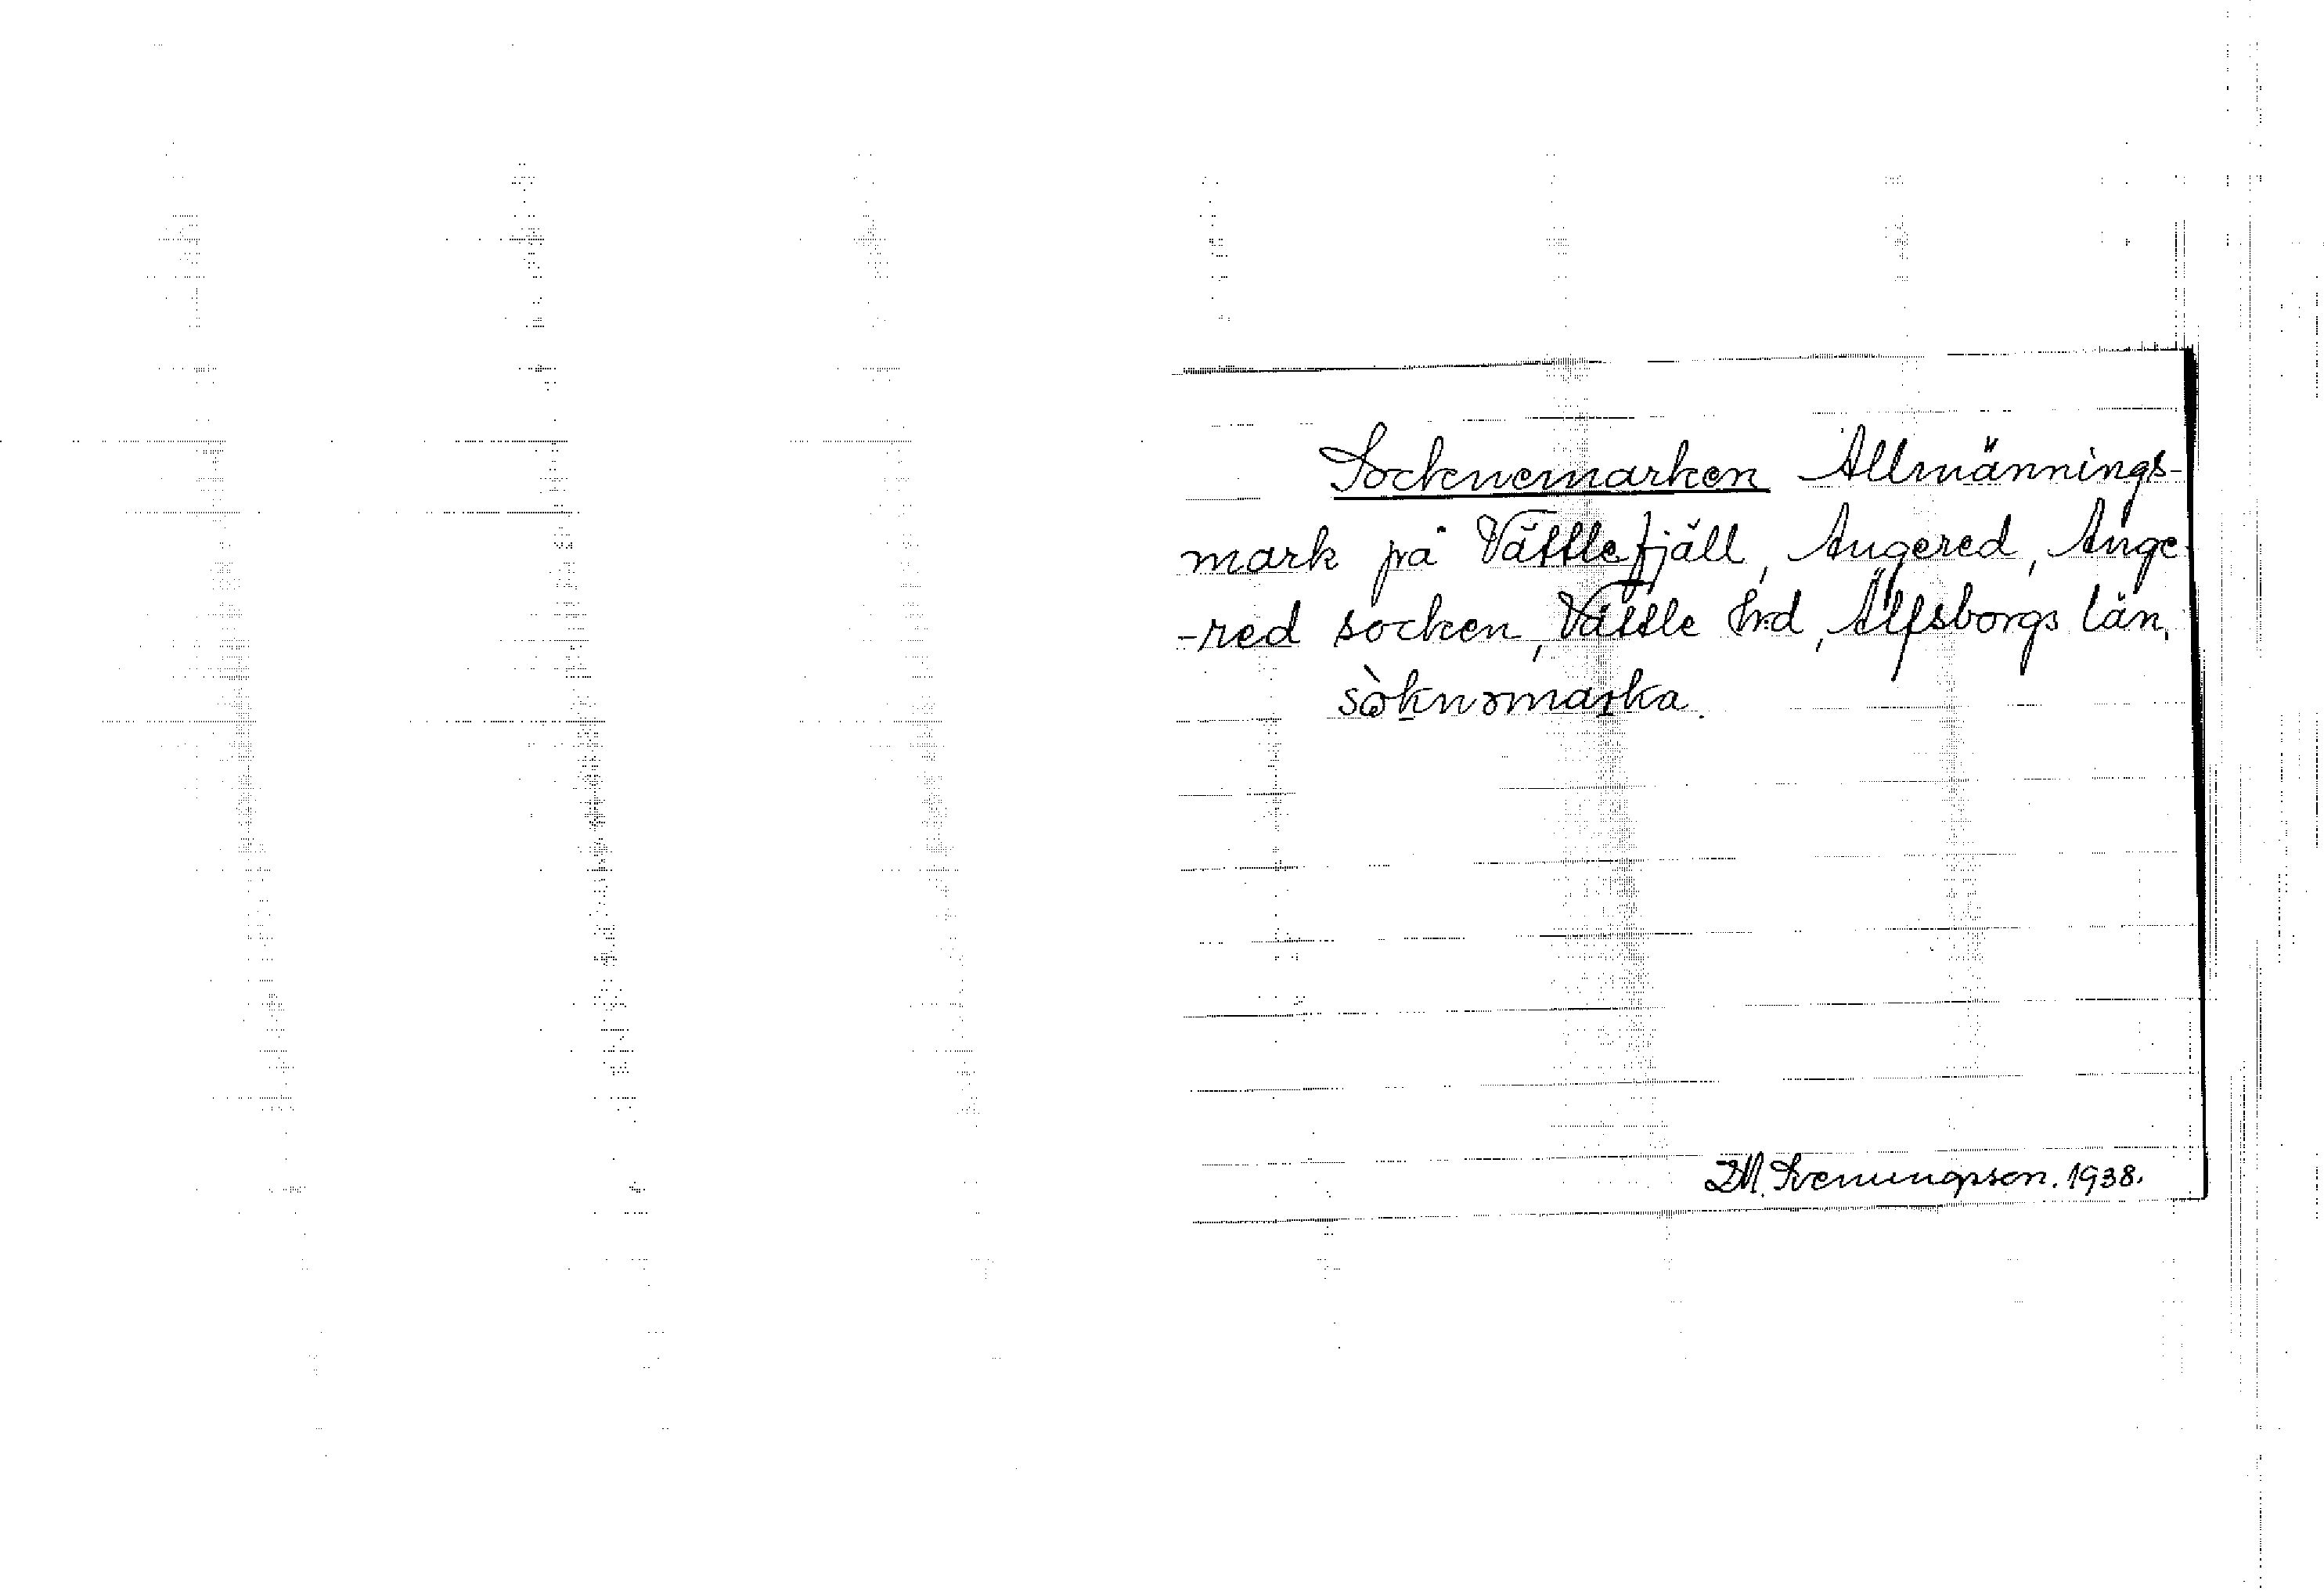 Socknemarken Allmännings-
mark på Vättlefjäll, Angered, Ange
-red socken, Vättle hd, Älfsborgs län,
sòknəmarka.
1938.